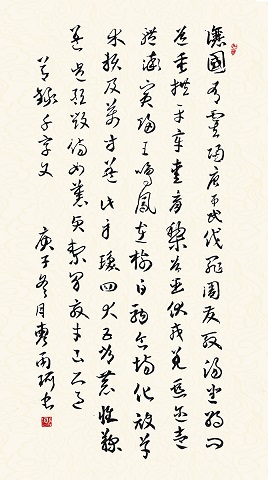 讓國有虞陶唐弔民伐罪周發殷湯坐朝問
道垂拱平章愛育黎首臣伏戎羌遐邇壹
體率賓歸王鳴鳳在樹白駒食場化被草
木賴及萬方蓋此身髮四大五常恭惟鞠
養豈敢毀傷女慕貞潔男效才良知過
節錄千字文 庚子冬月雨書